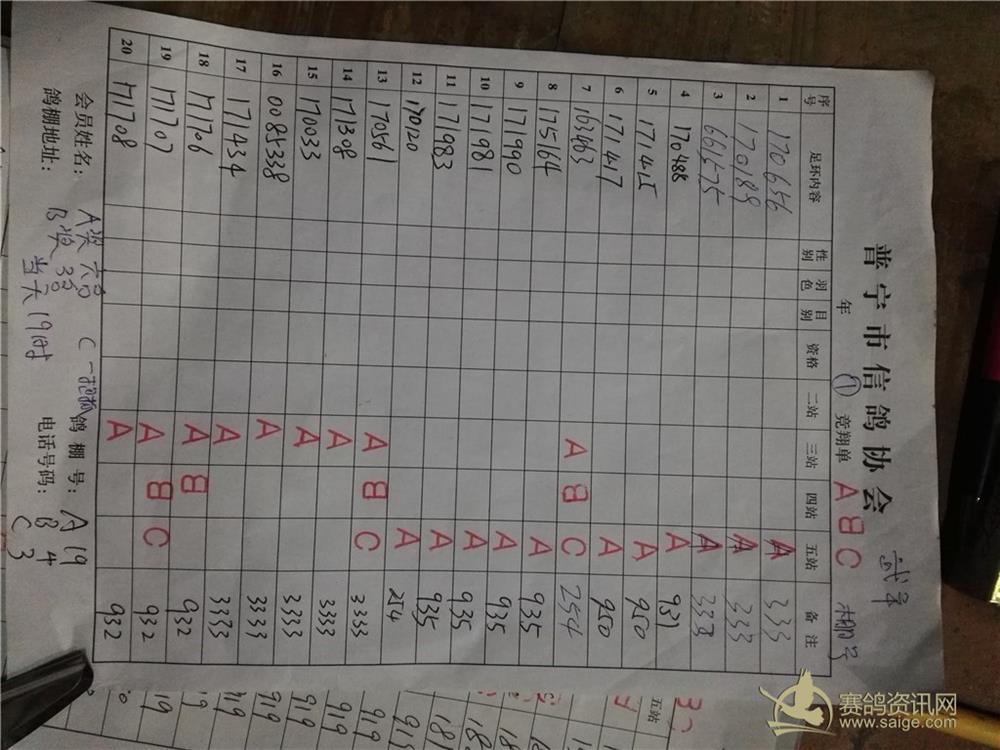 普宁市信鸽协会
年 ① 竞翔单 A B C 棚号
序号 足环内容 性别 羽色 目别 资格 二站 三站 四站 五站 备注
1 170656 A 333
2 170189 A 333
3 A 333
4 170488 A 937
5 171415 A 950
6 171417 A 950
7 163463 A B C 254
8 175164 A 935
9 171990 A 935
10 171981 A 935
11 171983 A 935
12 170120 A 254
13 170561 A B C 3333
14 171308 A 3333
15 170033 A 3333
16 0085338 A 3333
17 171434 A 3333
18 171706 A B 932
19 171707 A B C 932
20 171708 A 932
会员姓名: A奖 C 鸽棚号: A 19
鸽棚地址: B奖 当天19时 电话号码: B 4
C 3
五站
赛鸽资讯网
www.saige.com